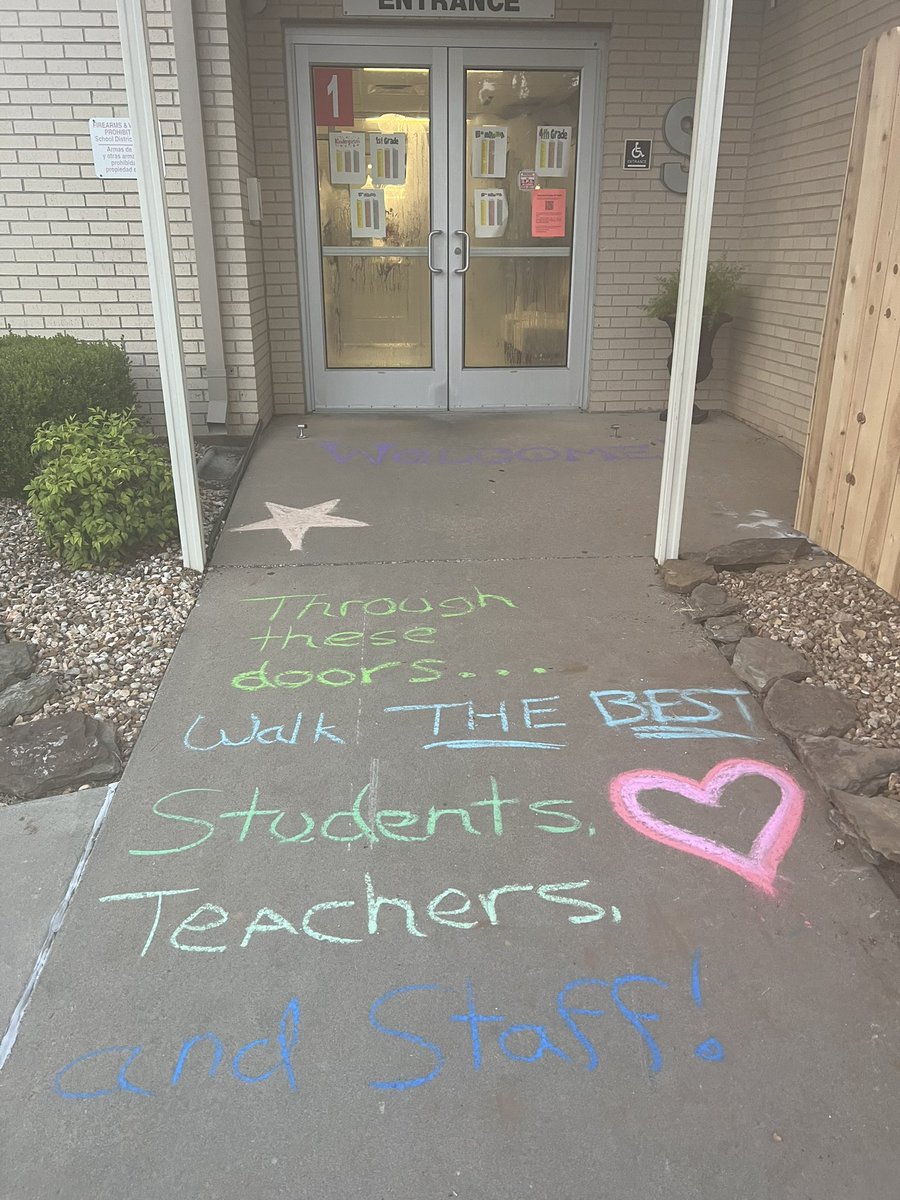 ENTRANCE
1
FIREARMS & W
PROHIBIT
School District
Armas de
y otras arma
prohibida
propiedad e
Kindergarten
1st Grade
4th Grade
ENTRANCE
S
WELCOME
Through
these
doors...
Walk THE BEST
Students,
Teachers,
and Staff!